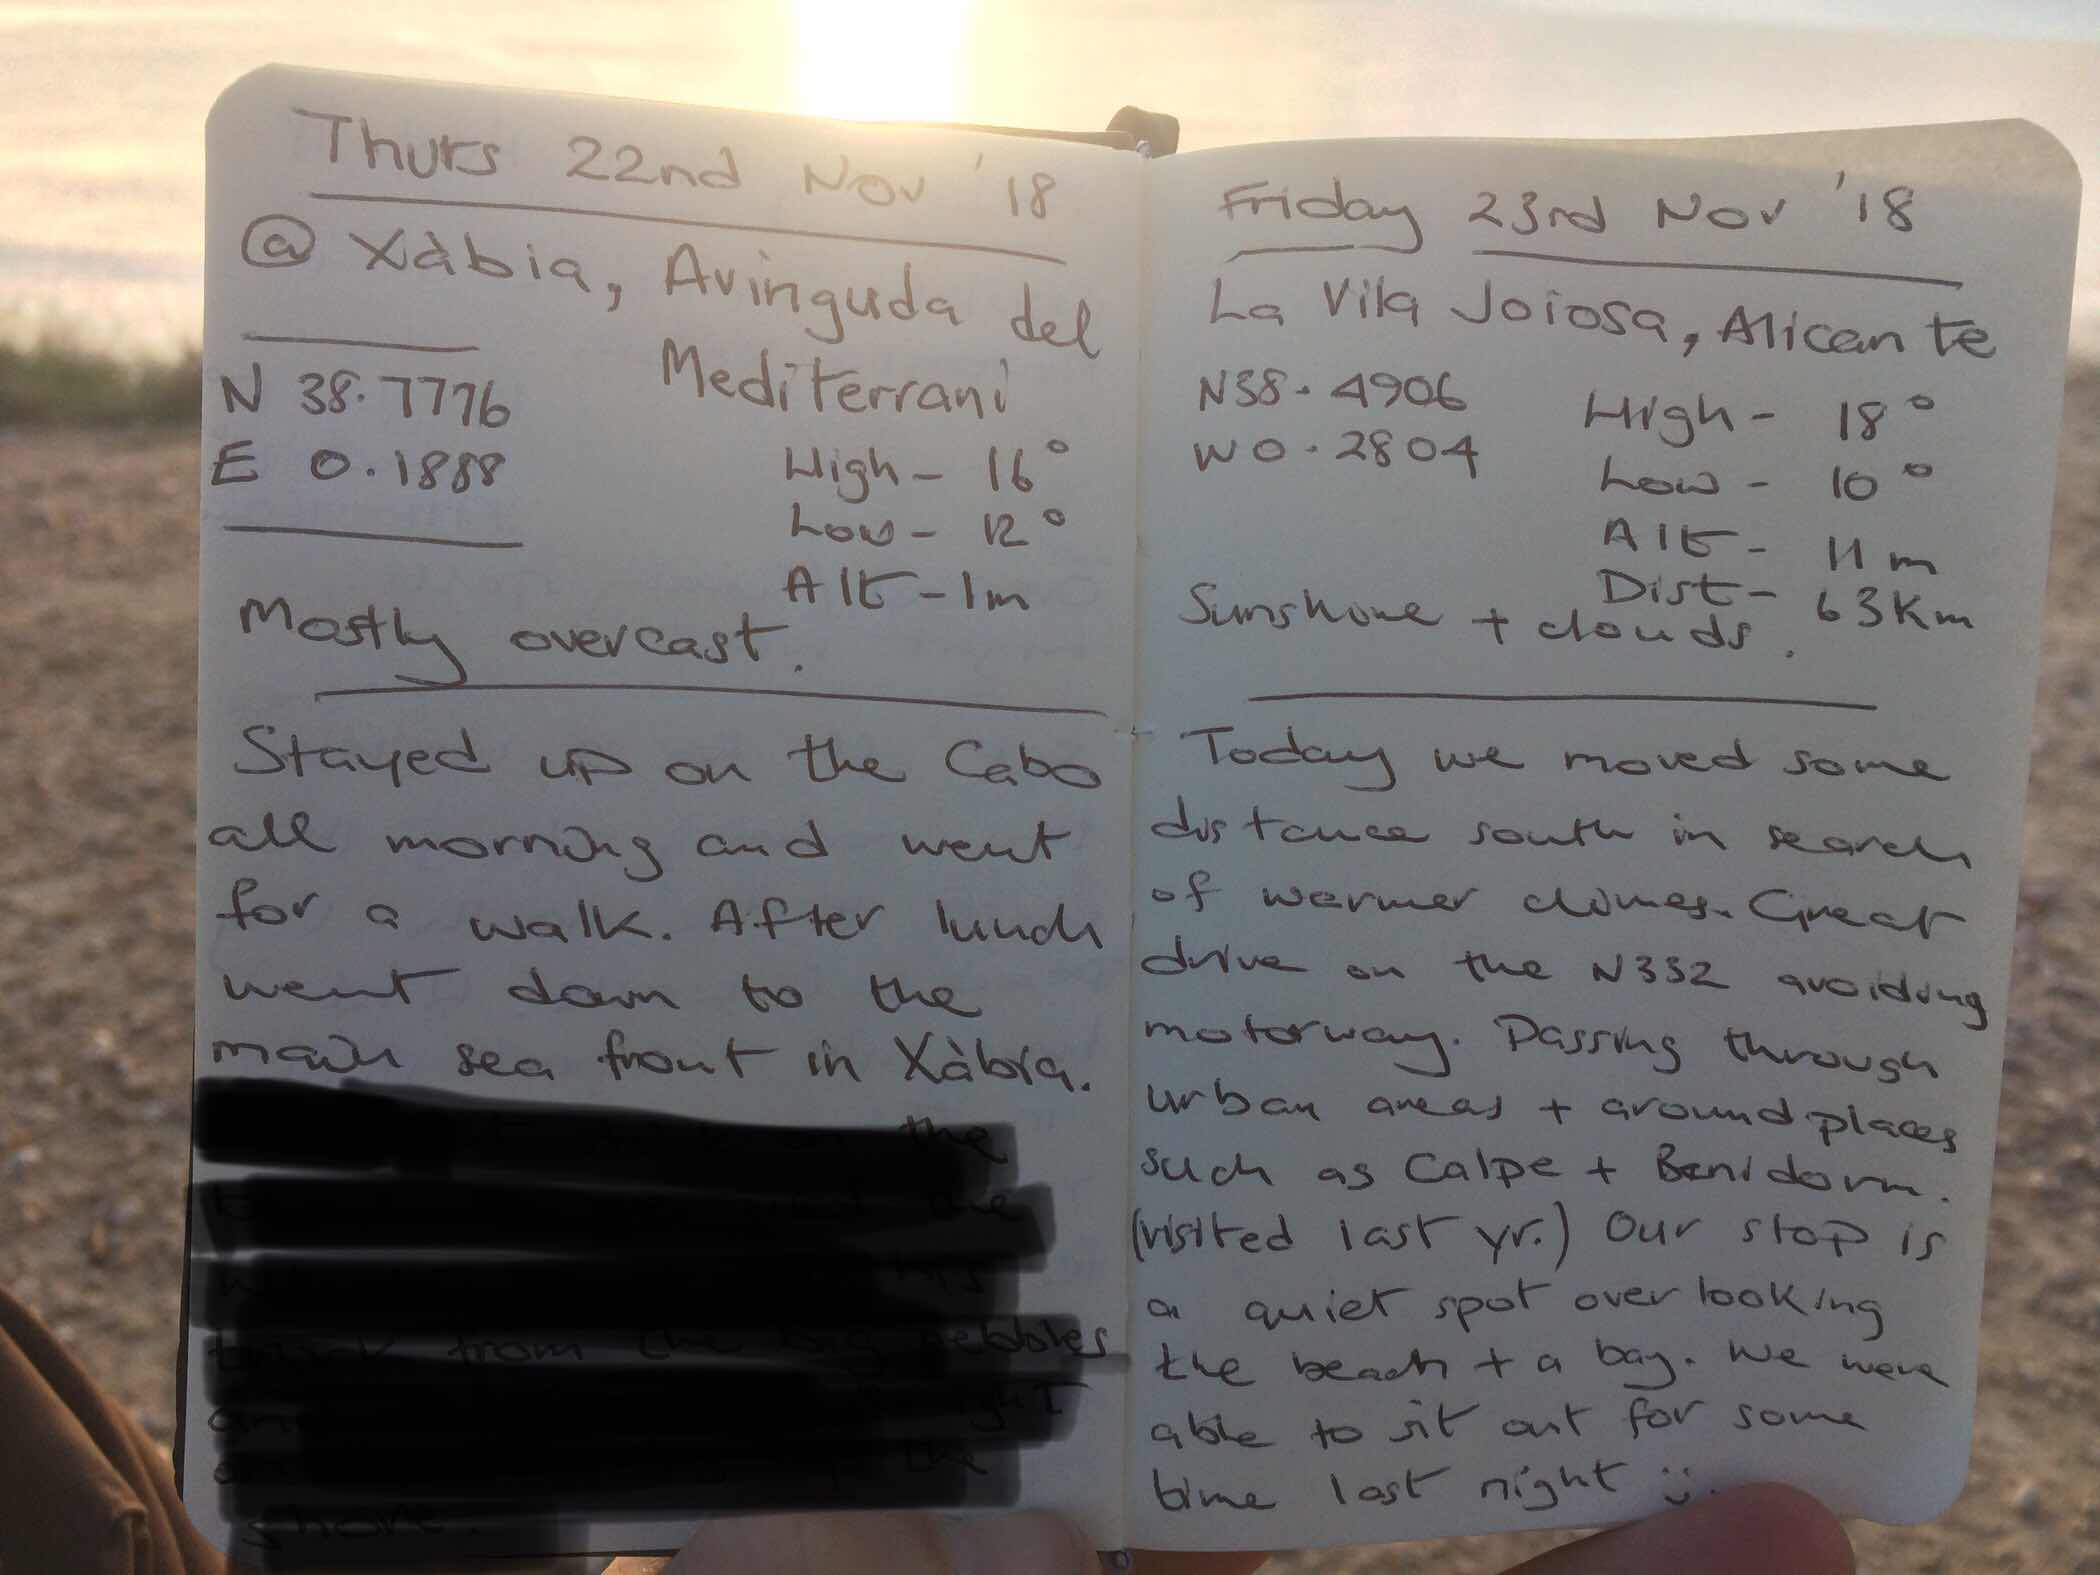 Thurs 22nd Nov '18
@ Xàbia, Avinguda del
Mediterrani
N 38.7776
E 0.1888
High - 16°
Low - 12°
Alt - 1m
Mostly overcast.
Stayed up on the Cabo
all morning and went
for a walk. After lunch
went down to the
main sea front in Xàbia.
the
the
from the big pebbles
the
shore.
Friday 23rd Nov '18
La Vila Joiosa, Alicante
N38.4906
W0.2804
High - 18°
Low - 10°
Alt - 11m
Dist - 63Km
Sunshine + clouds.
Today we moved some
distance south in search
of warmer climes. Great
drive on the N332 avoiding
motorway. Passing through
urban areas + around places
such as Calpe + Benidorm.
(visited last yr.) Our stop is
a quiet spot over looking
the beach + a bay. We were
able to sit out for some
time last night :).